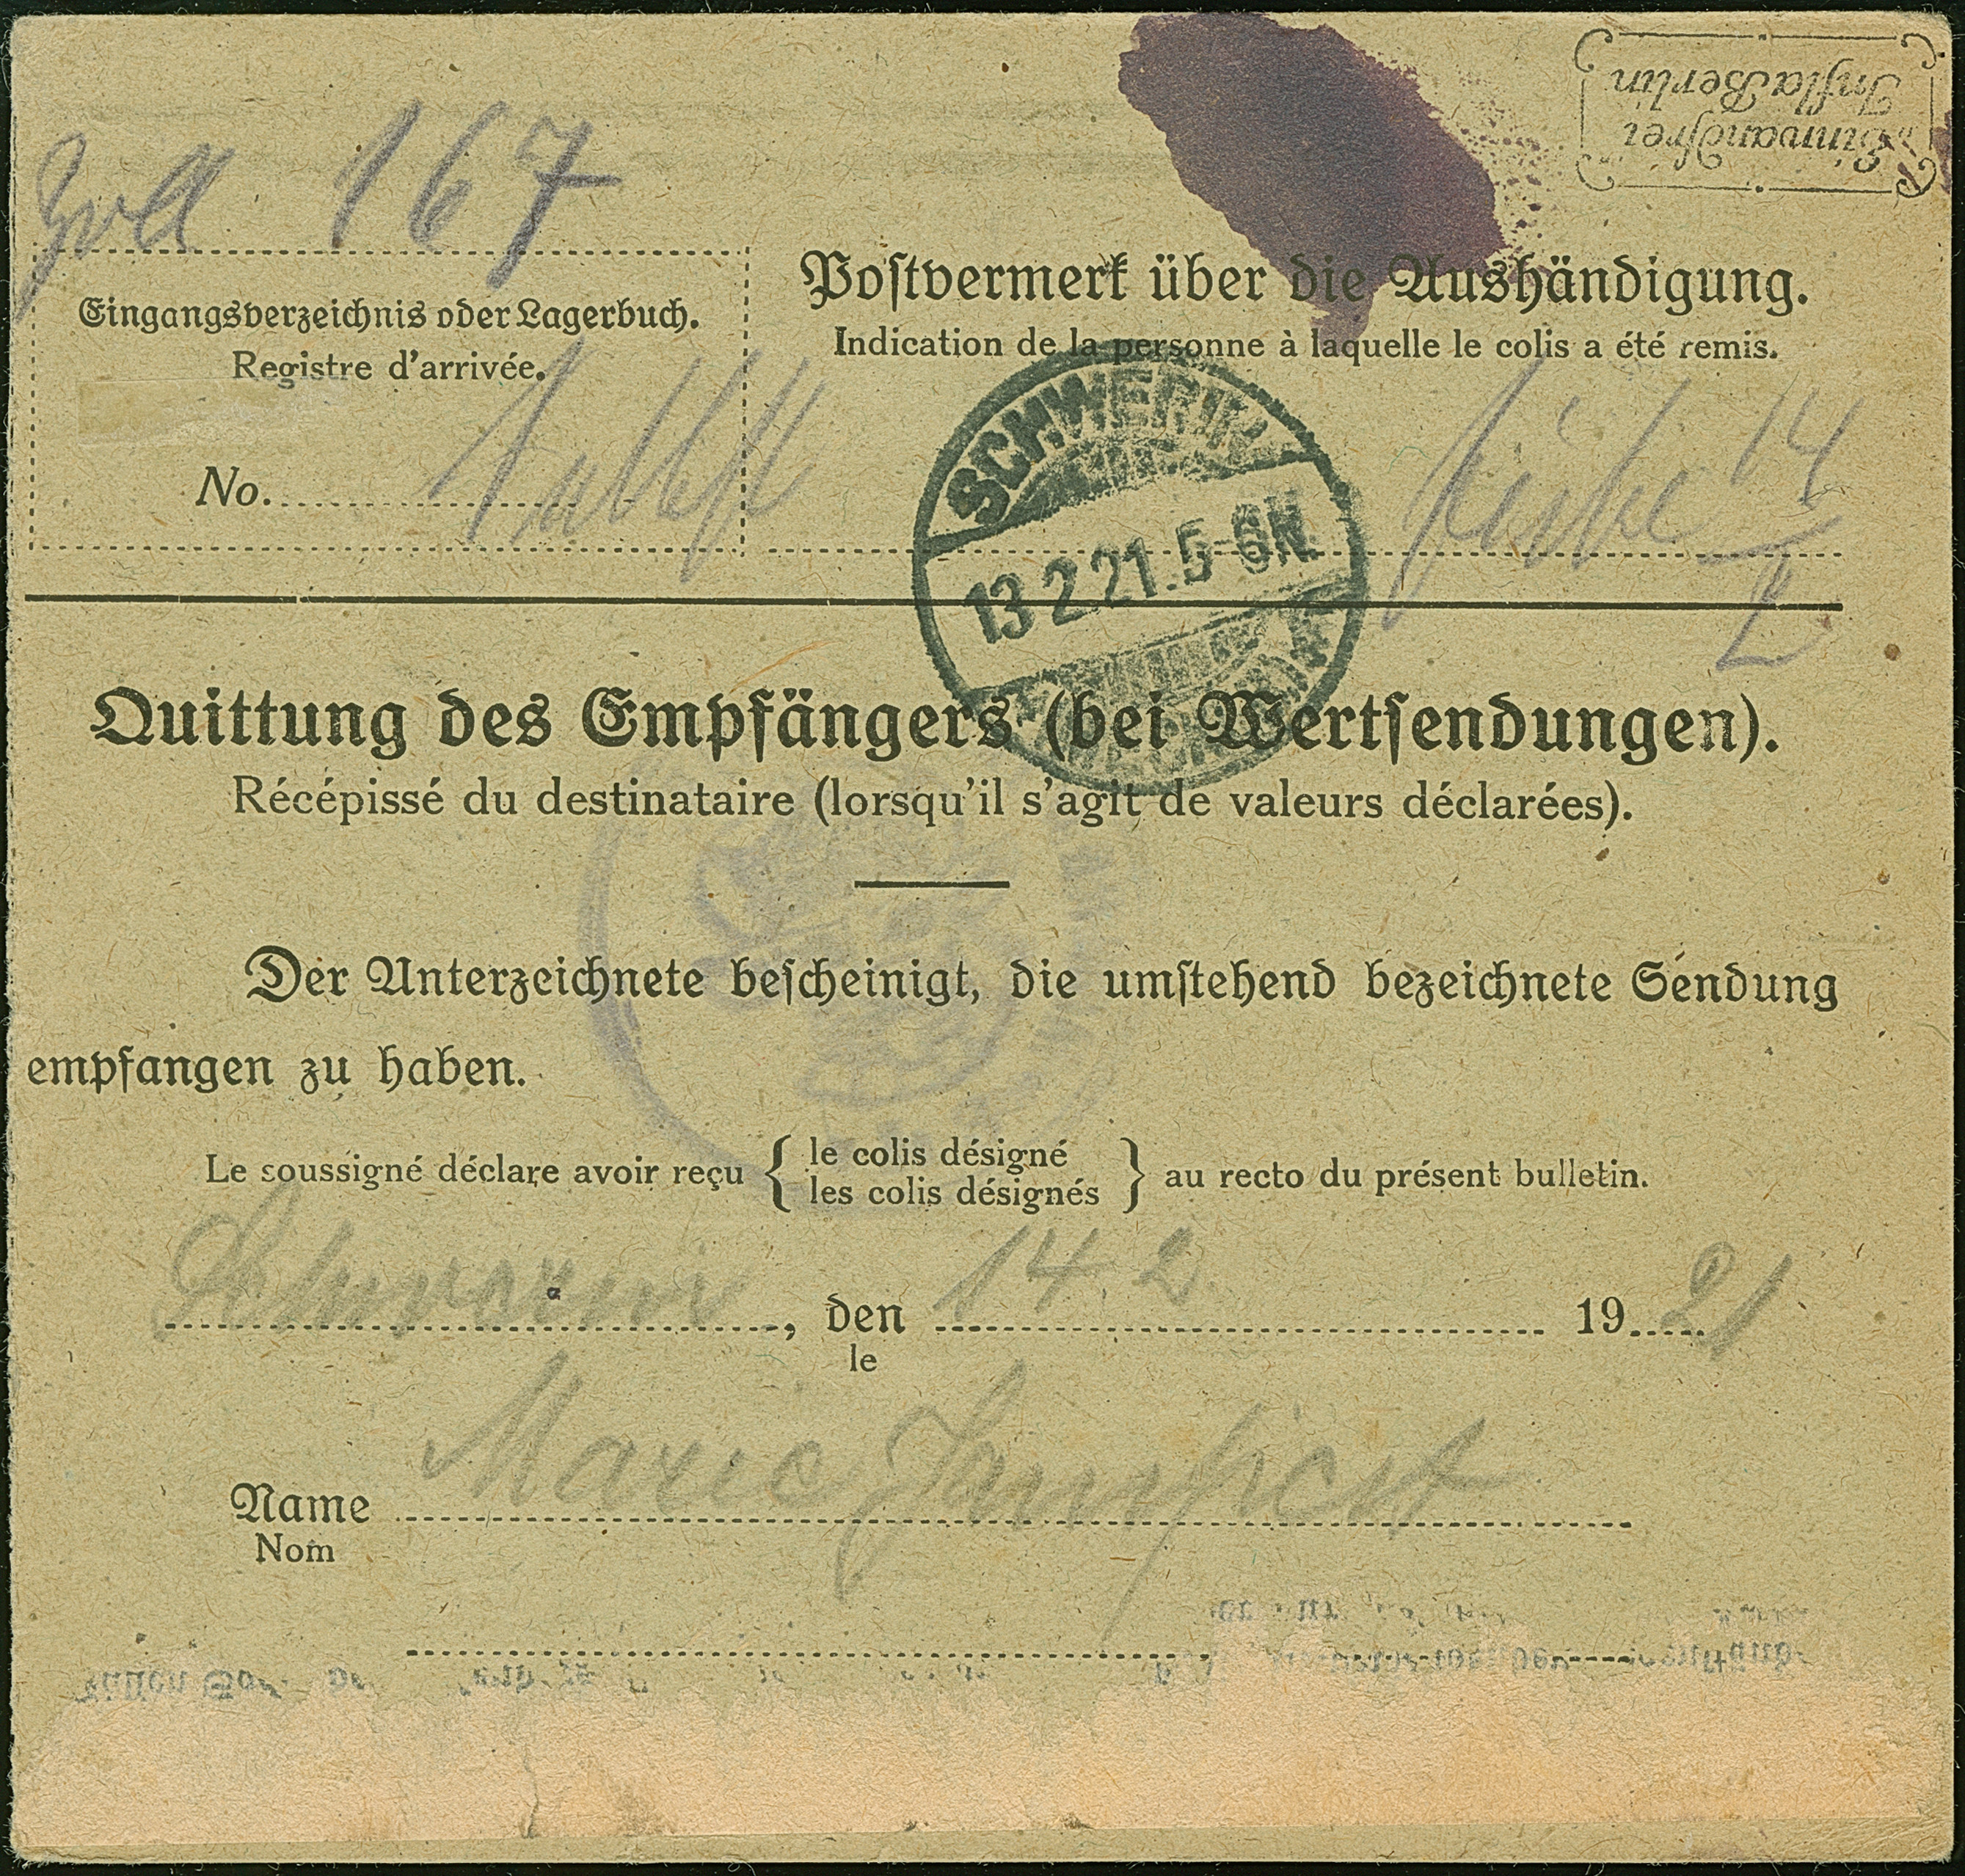 Einwandfrei
Infla Berlin
Zoll 167
Eingangsverzeichnis oder Lagerbuch.
Registre d'arrivée.
No.
Postvermerk über die Aushändigung.
Indication de la personne à laquelle le colis a été remis.
SCHWERIN
13.2.21. 5-6N.
14
2
Quittung des Empfängers (bei Wertsendungen).
Récépissé du destinataire (lorsqu'il s'agit de valeurs déclarées).
Der Unterzeichnete bescheinigt, die umstehend bezeichnete Sendung
empfangen zu haben.
Le soussigné déclare avoir reçu { le colis désigné
les colis désignés } au recto du présent bulletin.
Schwerin, den 14.2. 1921
le
Name Marie
Nom